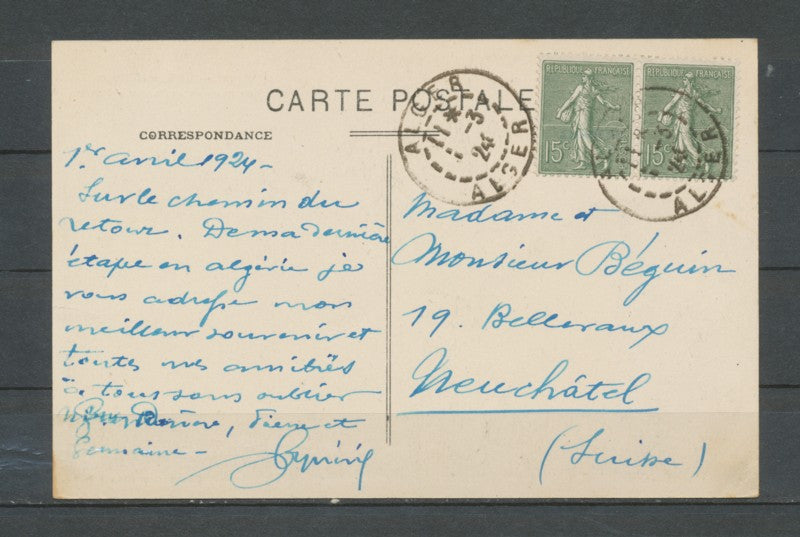 CARTE POSTALE
CORRESPONDANCE
RÉPUBLIQUE FRANÇAISE
15c
RÉPUBLIQUE FRANÇAISE
15c
ALGER
3
24
ALGER
24
ALGER
1er avril 1924 -
Sur le chemin du
retour. De ma dernière
étape en algérie je
vous adresse mon
meilleur souvenir et
toutes mes amitiés
à tous sans oublier
Pierre et
Germaine -
Madame et
Monsieur Béguin
19. Bellevaux
Neuchâtel
(Suisse)